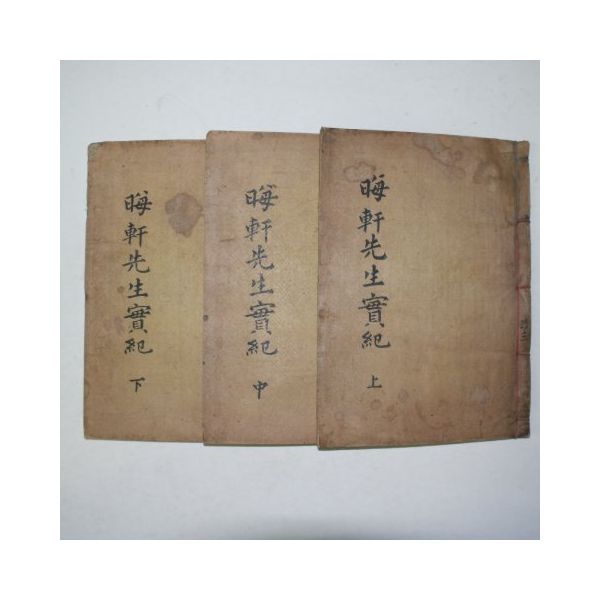 晦軒先生實紀 上
晦軒先生實紀 中
晦軒先生實紀 下
共三